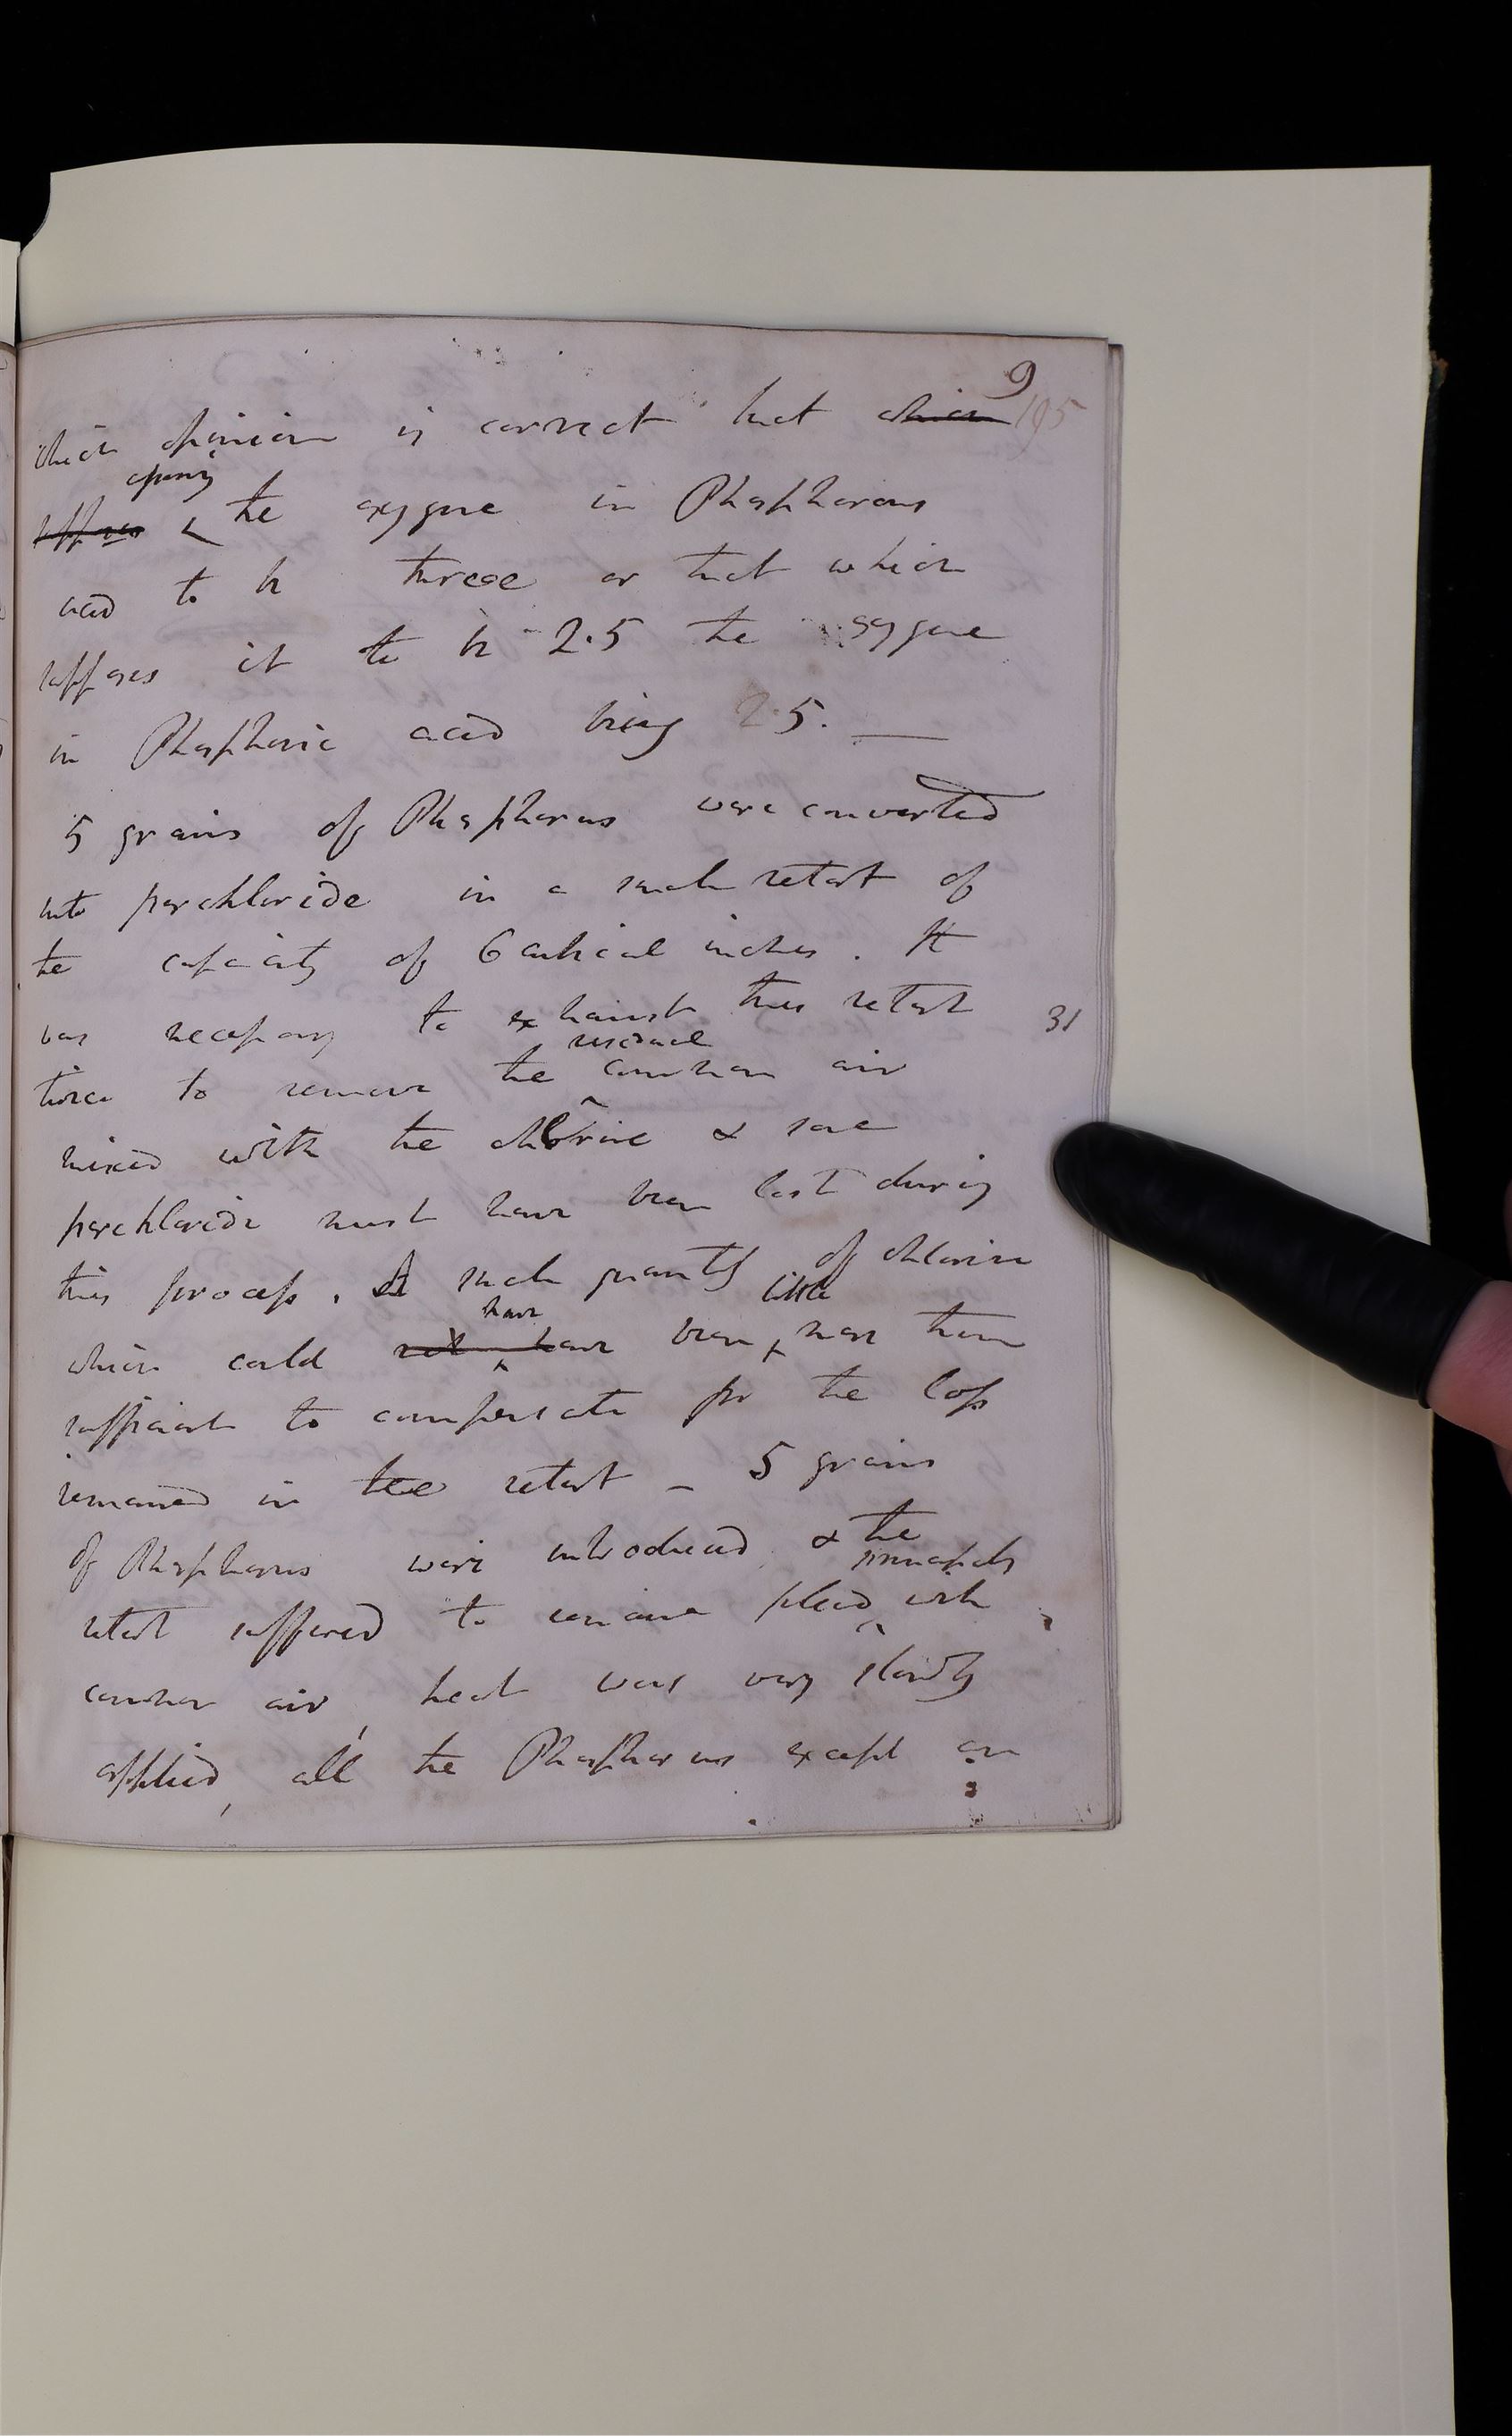 9
which opinion is correct that which 195
assuming
supposes the oxygene in Phosphorous
acid to be three or that which
supposes it to be 2.5 the oxygene
in Phosphoric acid being 2.5.
5 grains of Phosphorus were converted
into perchloride in a small retort of
the capacity of 6 cubical inches. It
was necessary to exhaust this retort 31
residual
twice to remove the common air
mixed with the chlorine & some
perchloride must have been lost during
this process. A small quantity of chlorine
have little
which could not have been more than
sufficient to compensate for the loss
remained in the retort – 5 grains
of Phosphorus were introduced & the
retort suffered to remain filled with
common air, heat was very slowly
applied, all the Phosphorus except an